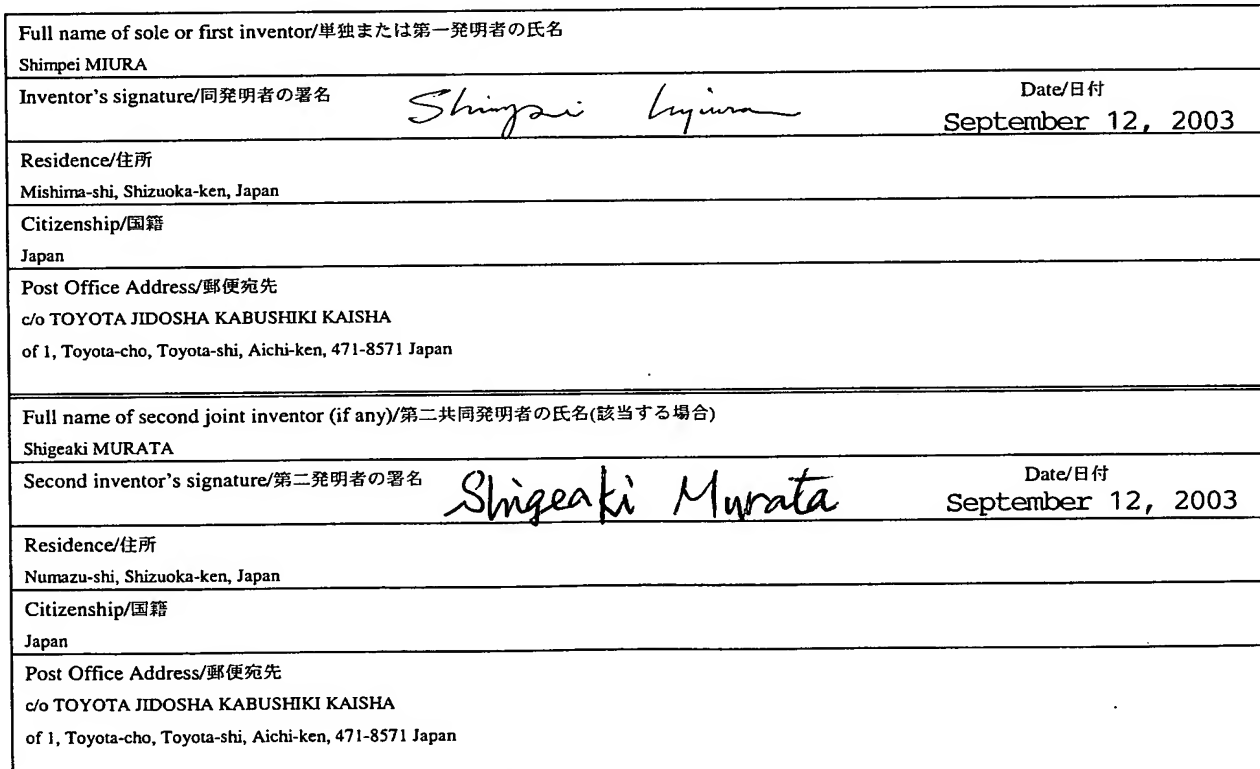 Full name of sole or first inventor/単独または第一発明者の氏名
Shimpei MIURA
Inventor's signature/同発明者の署名 Shimpei Date/日付
September 12, 2003
Residence/住所
Mishima-shi, Shizuoka-ken, Japan
Citizenship/国籍
Japan
Post Office Address/郵便宛先
c/o TOYOTA JIDOSHA KABUSHIKI KAISHA
of 1, Toyota-cho, Toyota-shi, Aichi-ken, 471-8571 Japan
Full name of second joint inventor (if any)/第二共同発明者の氏名(該当する場合)
Shigeaki MURATA
Second inventor's signature/第二発明者の署名 Shigeaki Murata Date/日付
September 12, 2003
Residence/住所
Numazu-shi, Shizuoka-ken, Japan
Citizenship/国籍
Japan
Post Office Address/郵便宛先
c/o TOYOTA JIDOSHA KABUSHIKI KAISHA
of 1, Toyota-cho, Toyota-shi, Aichi-ken, 471-8571 Japan